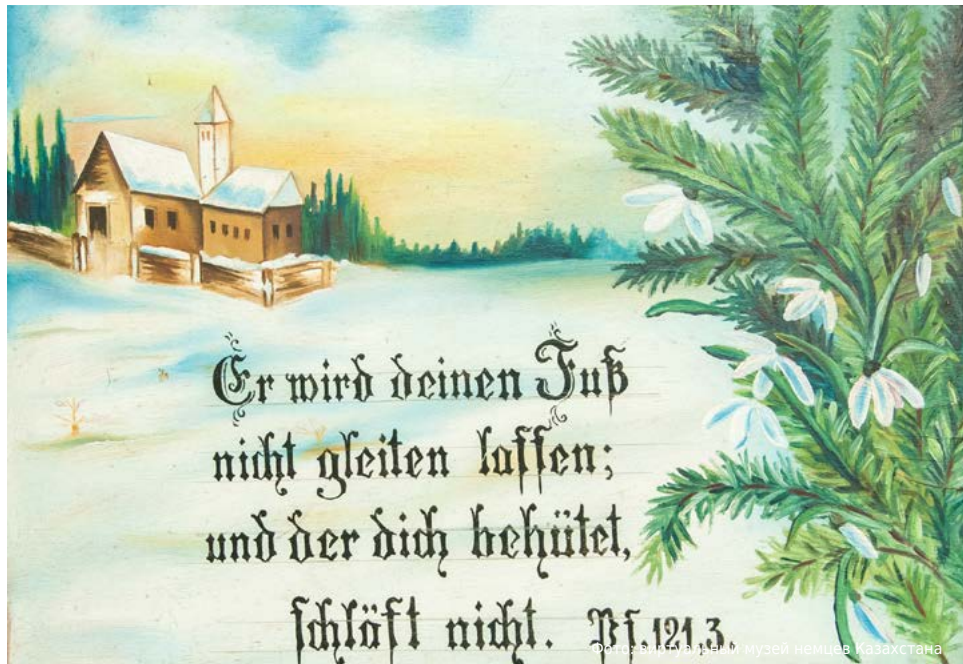 Er wird deinen Fuß
nicht gleiten lassen;
und der dich behütet,
schläft nicht. Ps. 121.3.
Фото: виртуальный музей немцев Казахстана